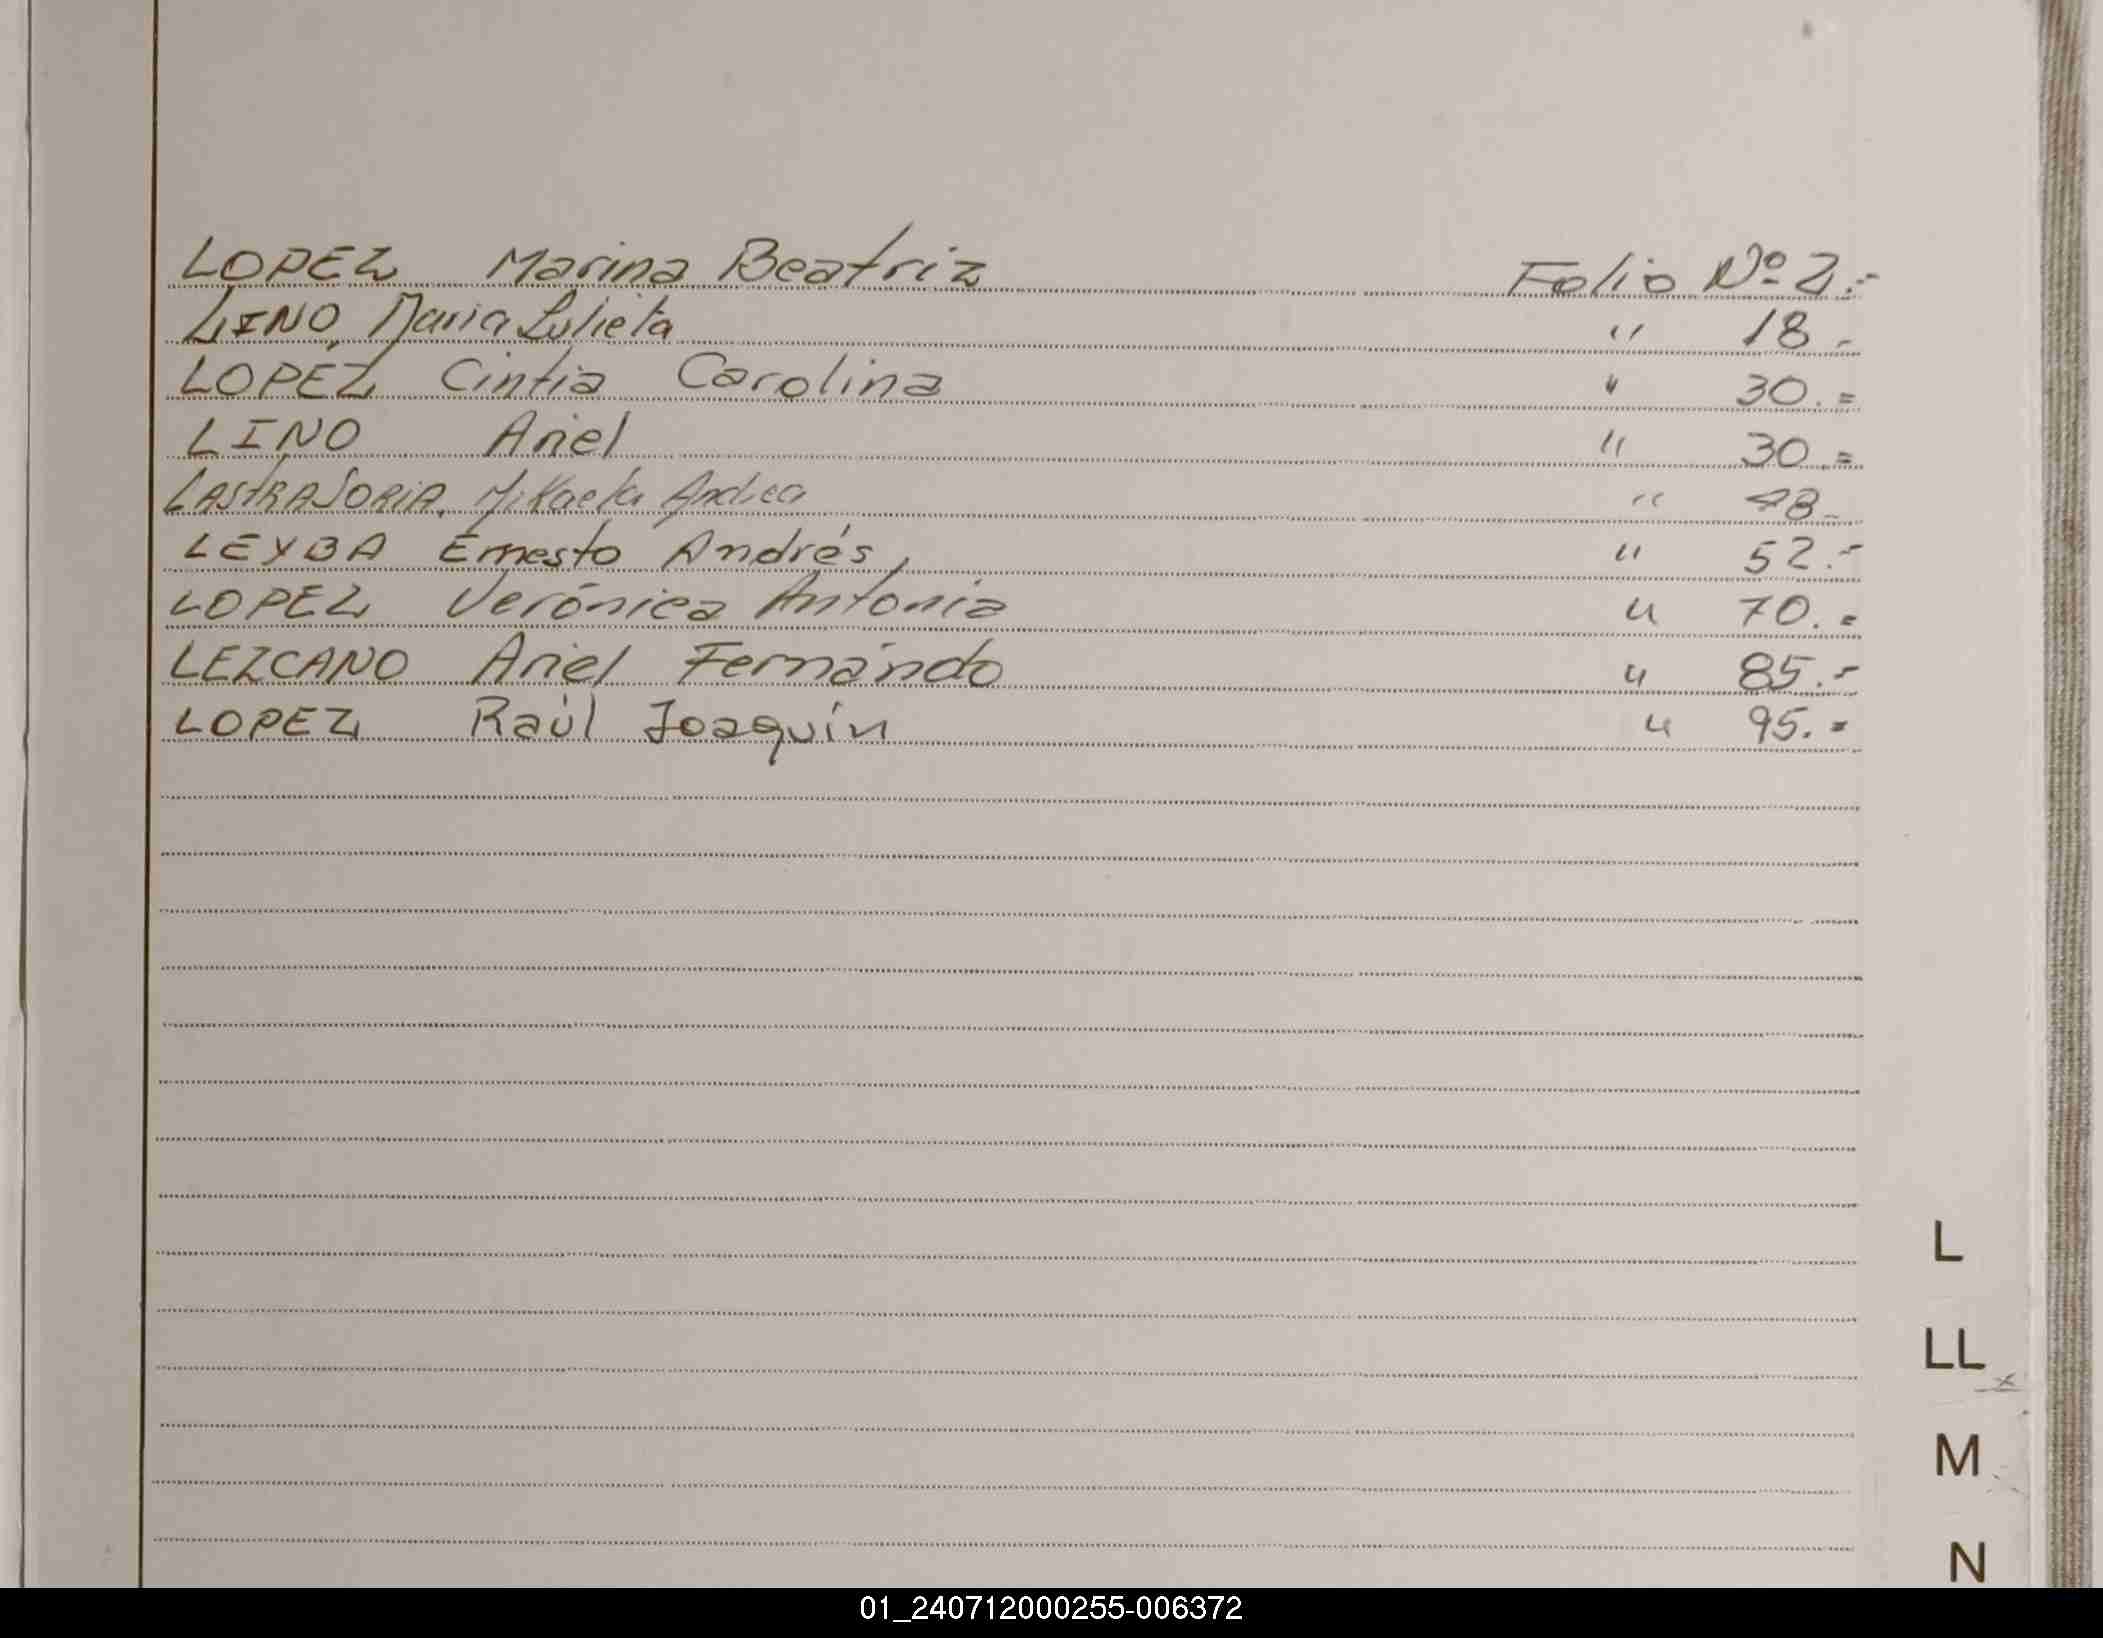 LOPEZ Marina Beatriz Folio Nº 2.-
LINO, Maria Julieta " 18.-
LOPÉZ Cintia Carolina " 30.=
LINO Ariel " 30.=
LASTRA SORIA, Mikaela Andrea " 48.-
LEYBA Ernesto Andrés " 52.-
LOPEZ Verónica Antonia " 70.=
LEZCANO Ariel Fernándo " 85.-
LOPEZ Raúl Joaquín " 95.=
L
LL
M
N
01_240712000255-006372